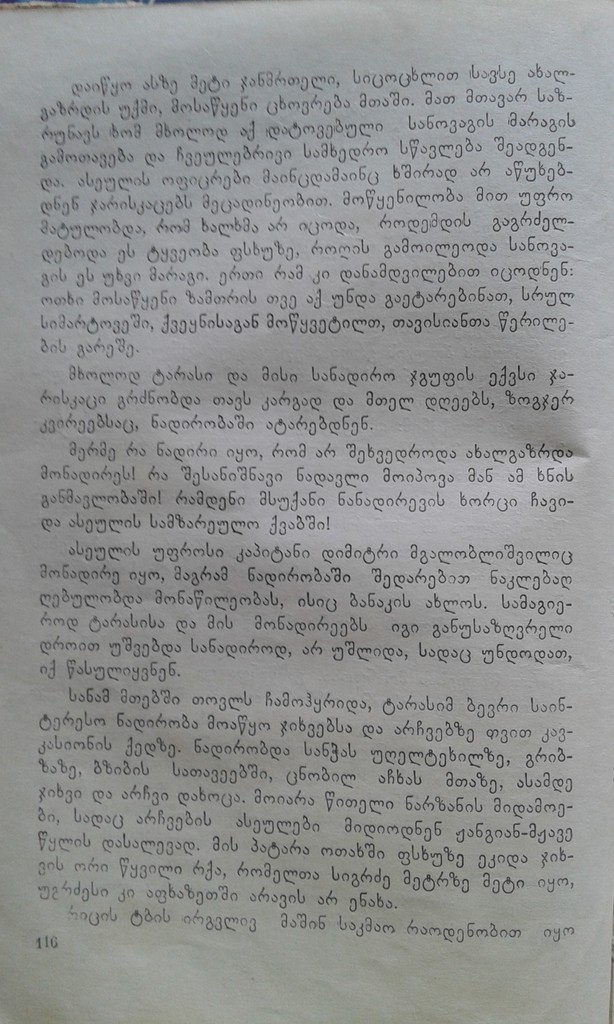 დაიწყო ასზე მეტი ჯანმრთელი, სიცოცხლით სავსე ახალ-
გაზრდის უქმი, მოსაწყენი ცხოვრება მთაში. მათ მთავარ საზ-
რუნავს ხომ მხოლოდ აქ დატოვებული სანოვაგის მარაგის
გამოთავება და ჩვეულებრივი სამხედრო სწავლება შეადგენ-
და. ასეულის ოფიცრები მაინცდამაინც ხშირად არ აწუხებ-
დნენ ჯარისკაცებს მეცადინეობით. მოწყენილობა მით უფრო
მატულობდა, რომ ხალხმა არ იცოდა, როდემდის გაგრძელ-
დებოდა ეს ტყვეობა ფსხუზე, როდის გამოილეოდა სანოვა-
გის ეს უხვი მარაგი. ერთი რამ კი დანამდვილებით იცოდნენ:
ოთხი მოსაწყენი ზამთრის თვე აქ უნდა გაეტარებინათ, სრულ
სიმარტოვეში, ქვეყნისაგან მოწყვეტილთ, თავისიანთა წერილე-
ბის გარეშე.
მხოლოდ ტარასი და მისი სანადირო ჯგუფის ექვსი ჯა-
რისკაცი გრძნობდა თავს კარგად და მთელ დღეებს, ზოგჯერ
კვირეებსაც, ნადირობაში ატარებდნენ.
მერმე რა ნადირი იყო, რომ არ შეხვედროდა ახალგაზრდა
მონადირეს! რა შესანიშნავი ნადავლი მოიპოვა მან ამ ხნის
განმავლობაში! რამდენი მსუქანი ნანადირევის ხორცი ჩავი-
და ასეულის სამზარეულო ქვაბში!
ასეულის უფროსი კაპიტანი დიმიტრი მგალობლიშვილიც
მონადირე იყო, მაგრამ ნადირობაში შედარებით ნაკლებად
ღებულობდა მონაწილეობას, ისიც ბანაკის ახლოს. სამაგიე-
როდ ტარასისა და მის მონადირეებს იგი განუსაზღვრელი
დროით უშვებდა სანადიროდ, არ უშლიდა, სადაც უნდოდათ,
იქ წასულიყვნენ.
სანამ მთებში თოვლს ჩამოჰყრიდა, ტარასიმ ბევრი საინ-
ტერესო ნადირობა მოაწყო ჯიხვებსა და არჩვებზე თვით კავ-
კასიონის ქედზე. ნადირობდა სანჭას უღელტეხილზე, გრიბ-
ზაზე, ბზიბის სათავეებში, ცნობილ აჩხას მთაზე, ასამდე
ჯიხვი და არჩვი დახოცა. მოიარა წითელი ნარზანის მიდამოე-
ბი, სადაც არჩვების ასეულები მიდიოდნენ ჟანგიან-მჟავე
წყლის დასალევად. მის პატარა ოთახში ფსხუზე ეკიდა ჯიხ-
ვის ორი წყვილი რქა, რომელთა სიგრძე მეტრზე მეტი იყო,
უგრძესი კი აფხაზეთში არავის არ ენახა.
რიცის ტბის ირგვლივ მაშინ საკმაო რაოდენობით იყო
116